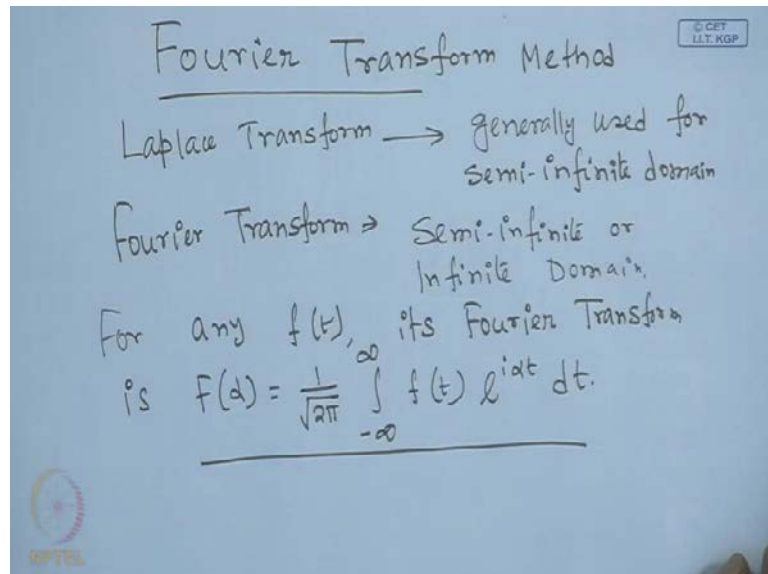 © CET
I.I.T. KGP
Fourier Transform Method
Laplace Transform → generally used for
semi-infinite domain
Fourier Transform → Semi-infinite or
Infinite Domain.
For any f(t), its Fourier Transform
is F(α) = 1/√2π ∫_{-∞}^{∞} f(t) e^{iαt} dt.
NPTEL